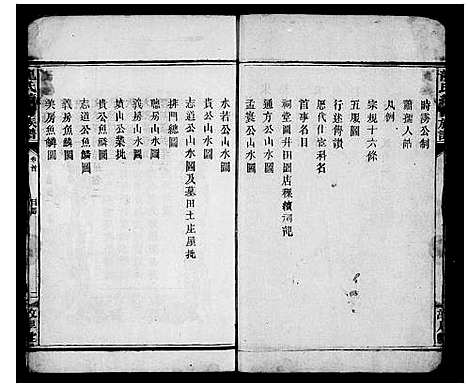 時務公制
蕭孺人誥
凡例
宗規十六條
五服圖
行述傳讚
歷代仕宦科名
首事名目
祠堂圖并田園店稞續祠龍
通方公山水圖
孟裳公山水圖
水若公山水圖
貴公山水圖
志道公山水圖及墓田土庄屋批
排門總圖
聰房山水圖
義房山水圖
墳山公業批
貴公魚鱗圖
志道公魚鱗圖
義房魚鱗圖
美房魚鱗圖
卷首
目錄
二